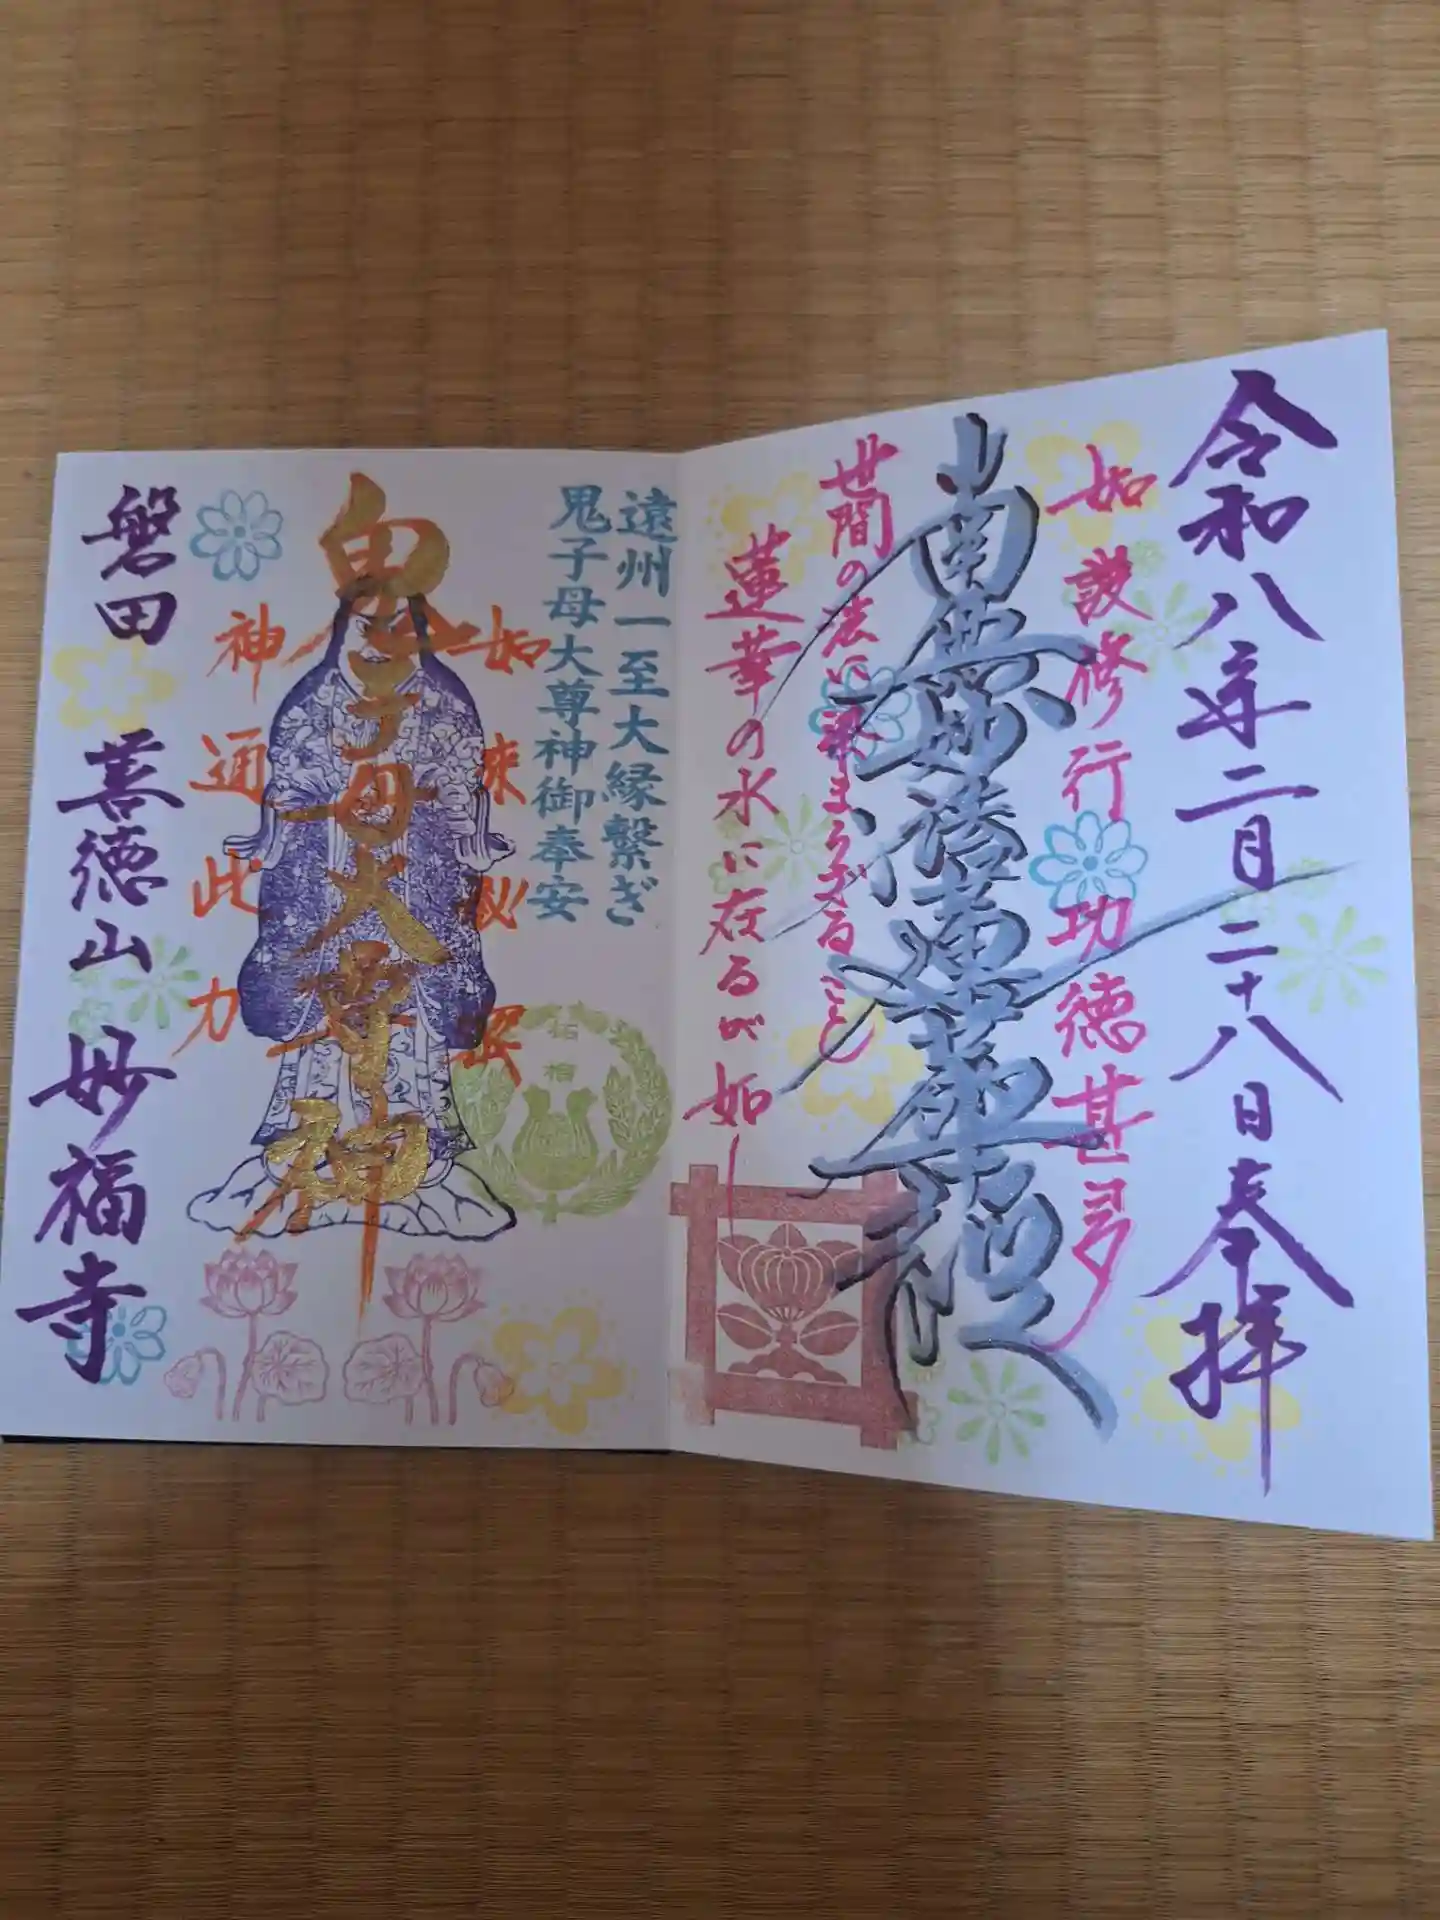 令和八年二月二十八日奉拝
如説修行功徳甚多
南無妙法蓮華経
世間の法に染まらざること
蓮華の水に在るが如し
遠州一至大縁繋ぎ
鬼子母大尊神御奉安
如来秘密
鬼子母大尊神
神通之力
磐田 善徳山 妙福寺